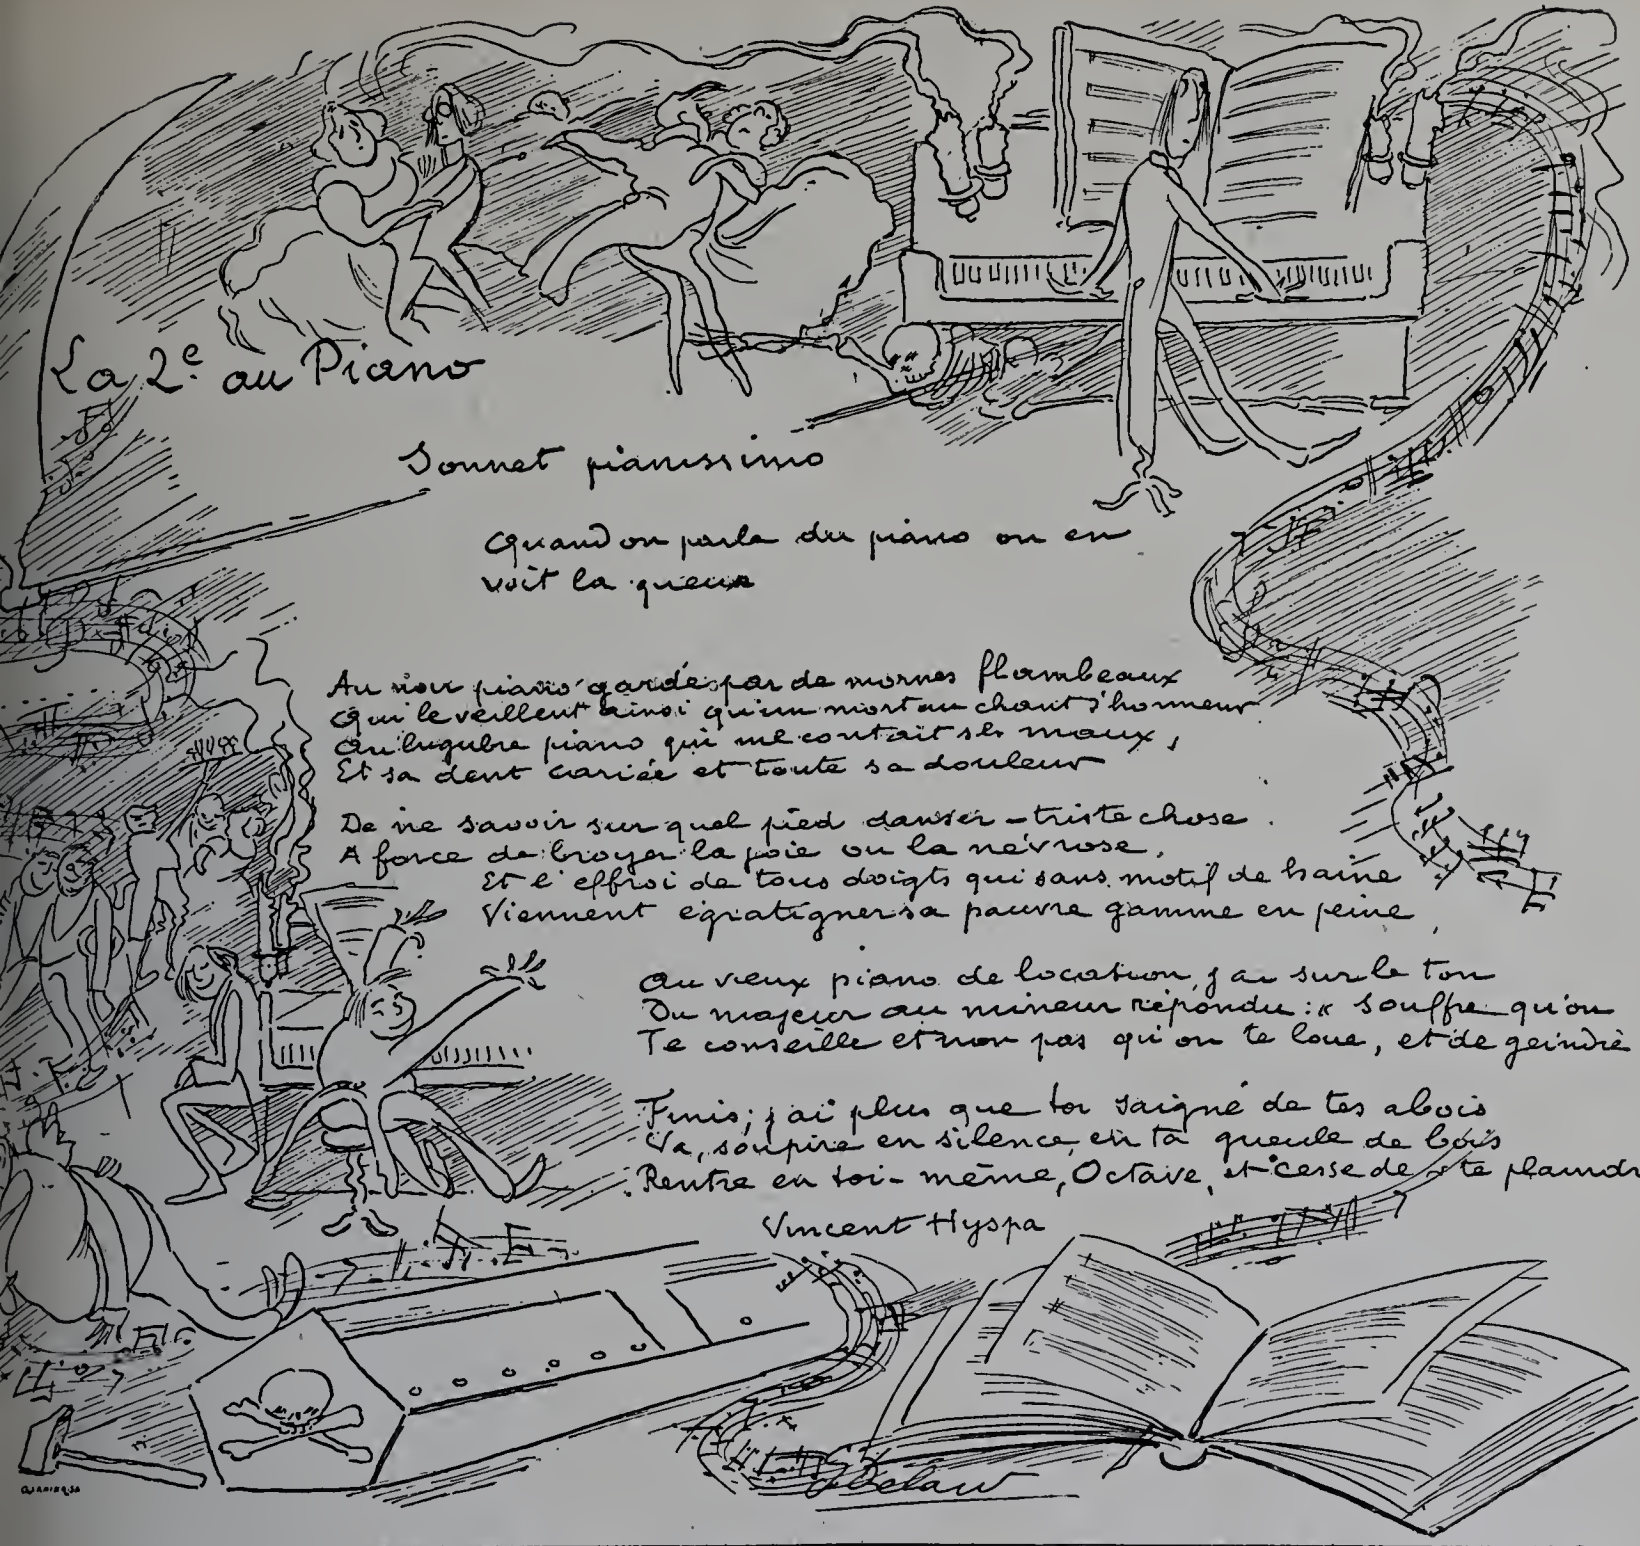 La 2e. au Piano
Sonnet pianissimo
Quand on parle du piano on en
voit la queue
Au noir piano gardé par de mornes flambeaux
Qui le veillent ainsi qu'un mort au chant d'honneur
Au lugubre piano qui me contait ses maux,
Et sa dent cariée et toute sa douleur
De ne savoir sur quel pied danser - triste chose.
A force de broyer la joie ou la névrose,
Et l'effroi de tous doigts qui sans motif de haine
Viennent égratigner sa pauvre gamme en peine,
Au vieux piano de location, j'ai sur le ton
Du majeur au mineur répondu: « Souffre qu'on
Te conseille et non pas qu'on te loue, et de geindre
Finis; j'ai plus que toi saigné de tes abois
Va, soupire en silence, en ta gueule de bois
Rentre en toi-même, Octave, et cesse de te plaindr
Vincent Hyspa